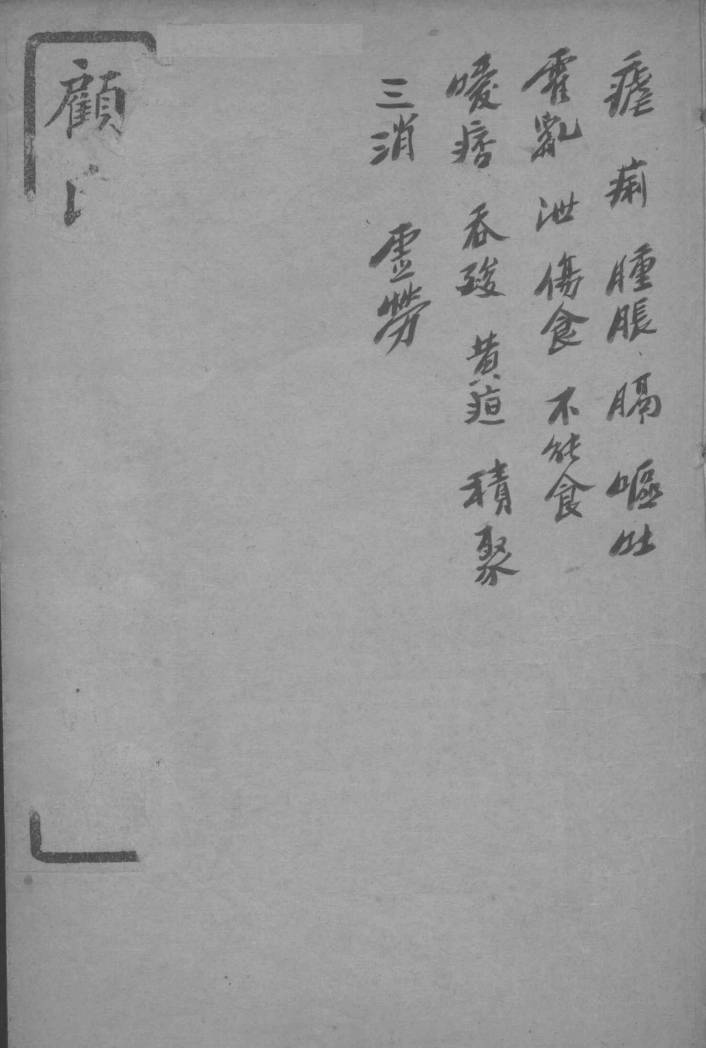 瘧 痢 腫脹 膈 嘔吐
霍亂 泄 傷食 不能食
噯痞 吞酸 黄疸 積聚
三消 虛勞
顧